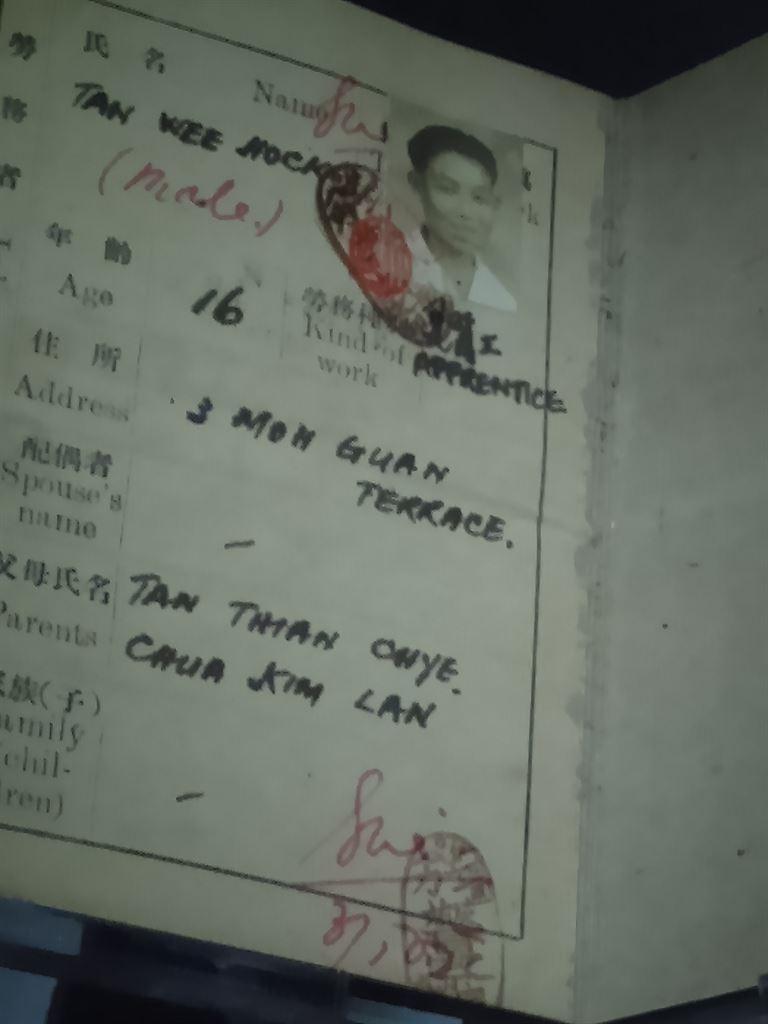 氏名
Name
TAN WEE HOCK
(Male.)
年齡
Age
16
勞務種
Kind of
work
工
APPRENTICE
住所
Address
3 MOH GUAN
TERRACE.
配偶者
Spouse's
name
—
父母氏名
Parents
TAN THIAN CHYE.
CHUA KIM LAN
族(子)
Family
(chil-
dren)
—
勞務者